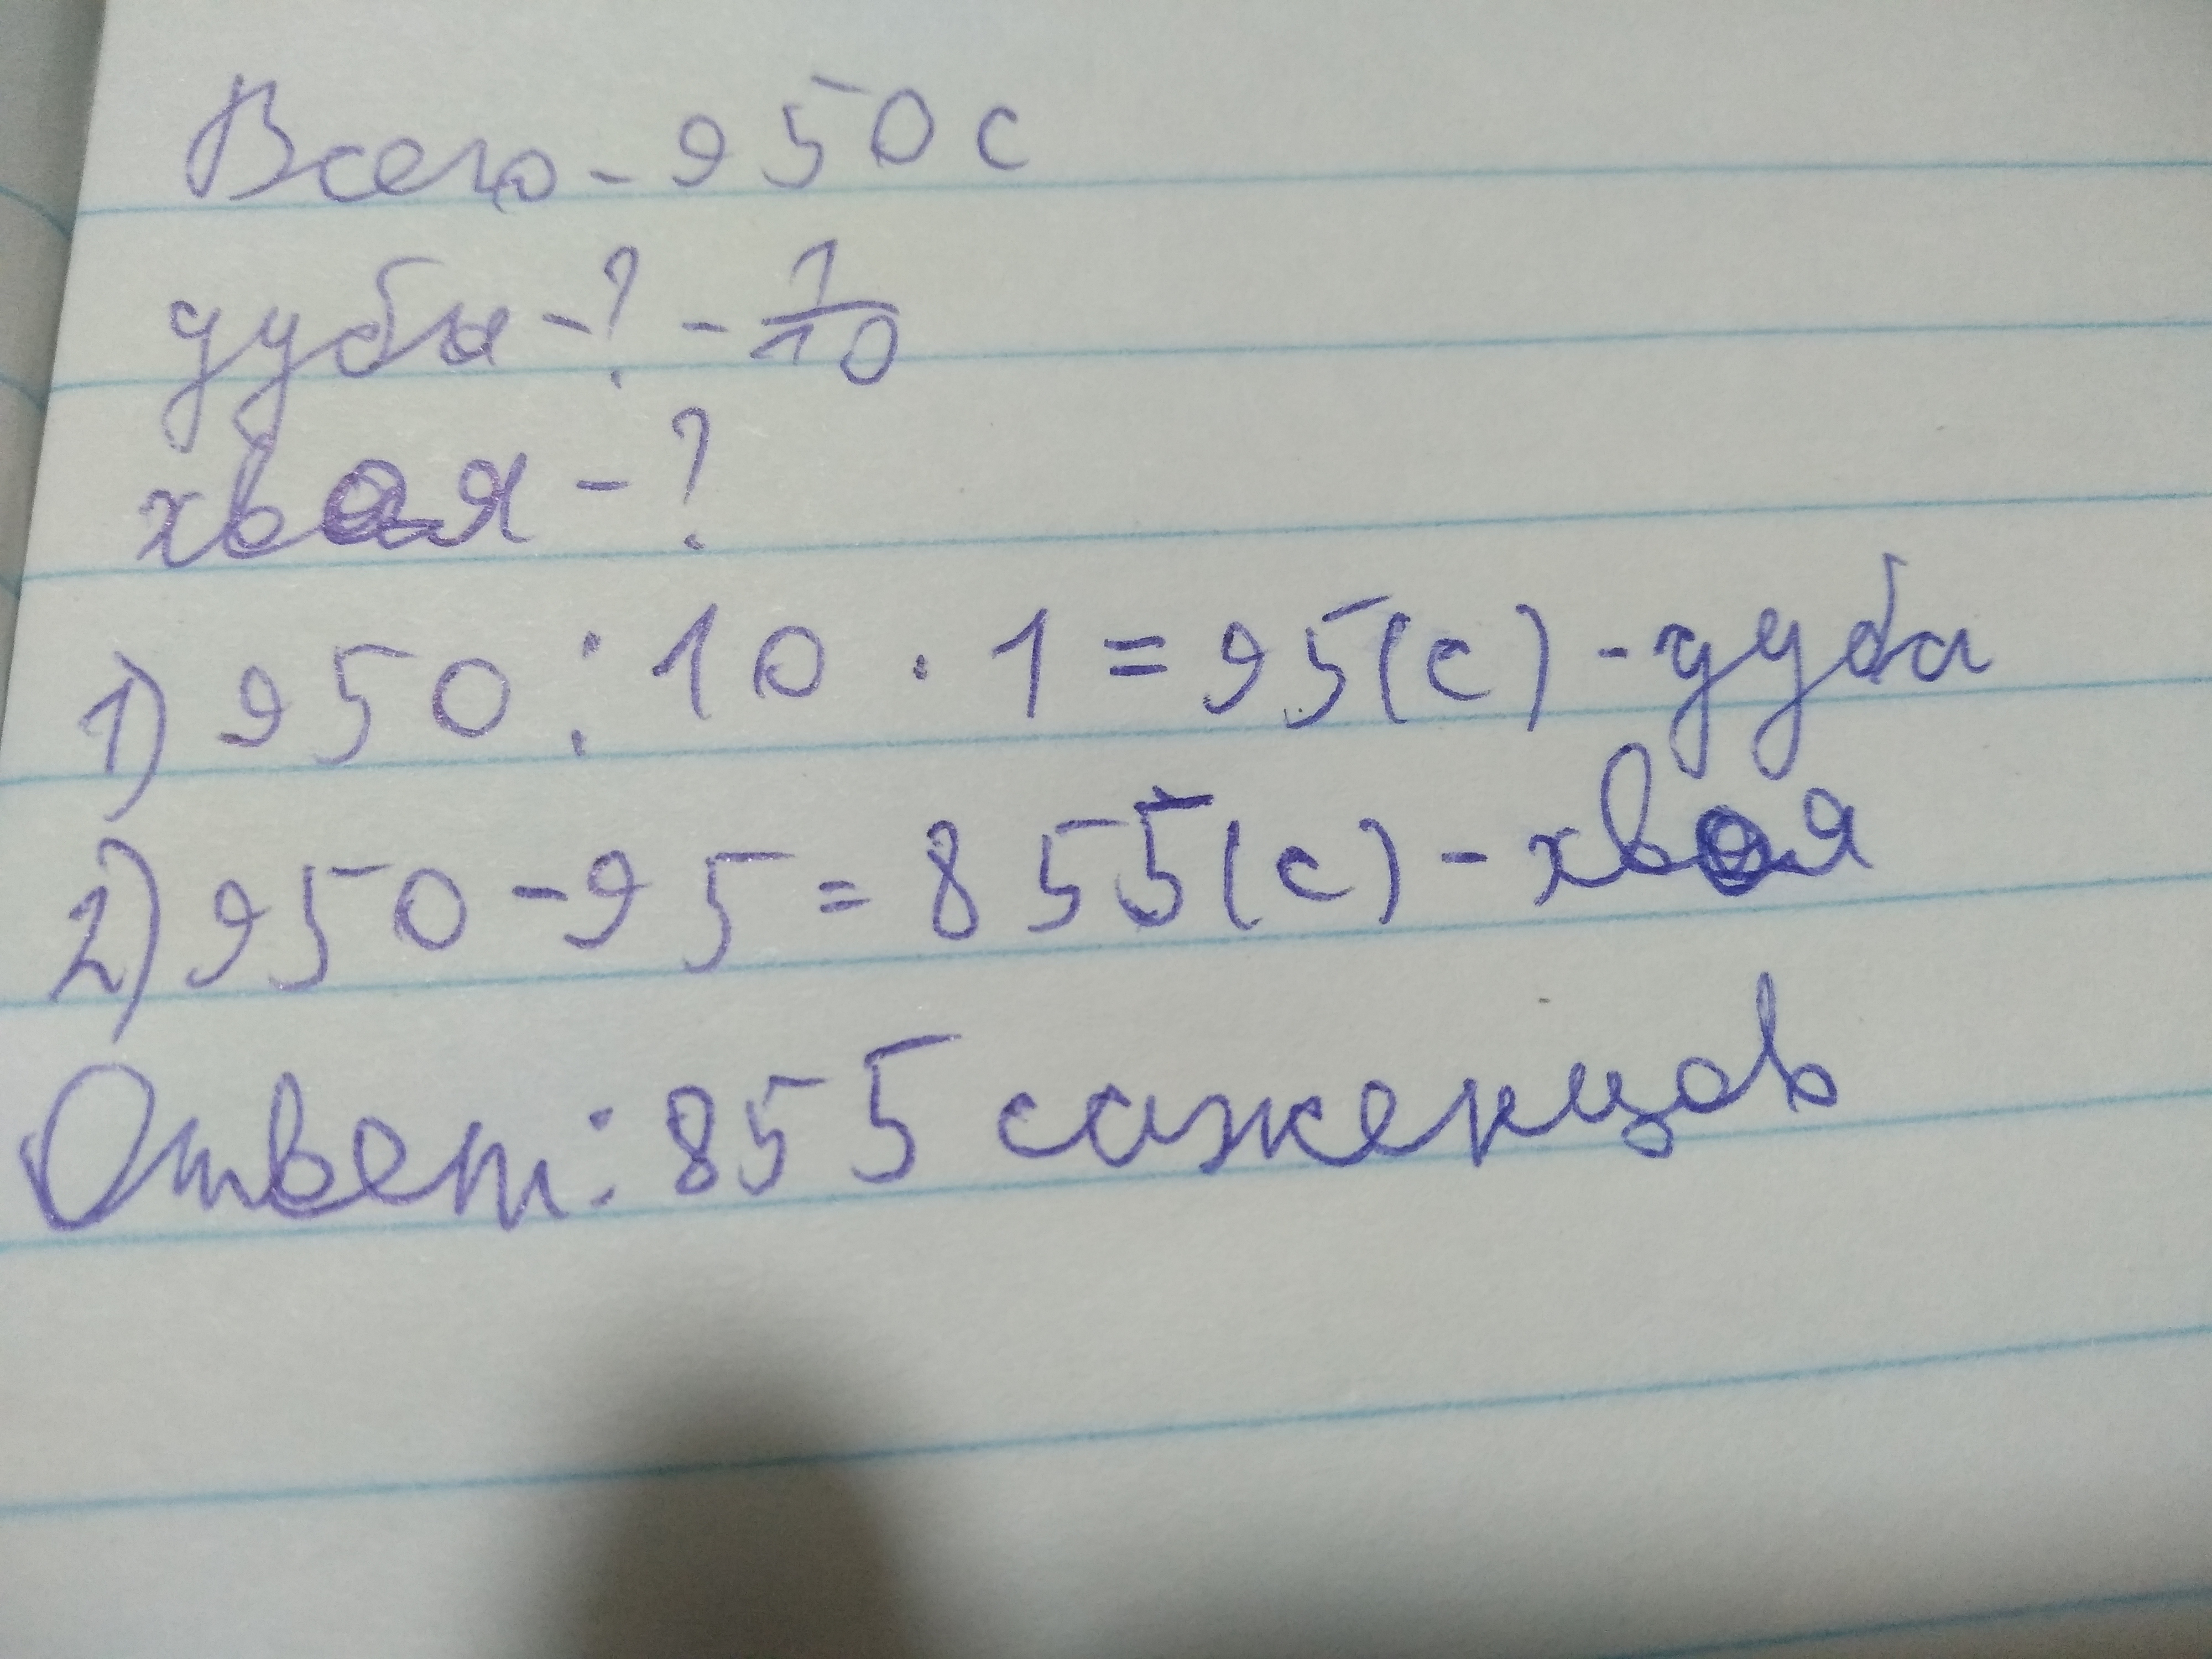 Всего - 950 с
дуба - ? - 1/10
хвоя - ?
1) 950 : 10 · 1 = 95(с) - дуба
2) 950 - 95 = 855(с) - хвоя
Ответ: 855 саженцов